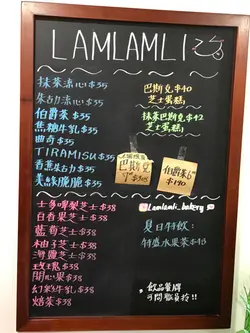 LAMLAMLI
抹茶流心 $35
朱古力流心 $35
伯爵茶 $35
焦糖牛乳 $35
曲奇 $35
TIRAMISU $35
香蕉朱古力 $35
美綠脆脆 $35
士多啤梨芝士 $38
百香果芝士 $38
藍莓芝士 $38
柚子芝士 $38
海鹽芝士 $38
玫瑰 $38
開心果 $38
幻彩牛乳 $38
焙茶 $38
巴斯克 $40
芝士蛋糕
抹茶巴斯克 $42
芝士蛋糕
巴斯克
伯爵茶6"
$190
@lamlamli_bakery
夏日特飲:
特盛水果茶 $48
飲品餐牌
可問職員拎!!